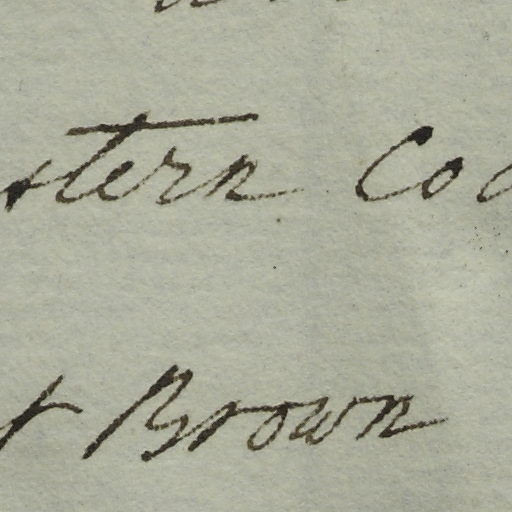 stern Co
t Brown